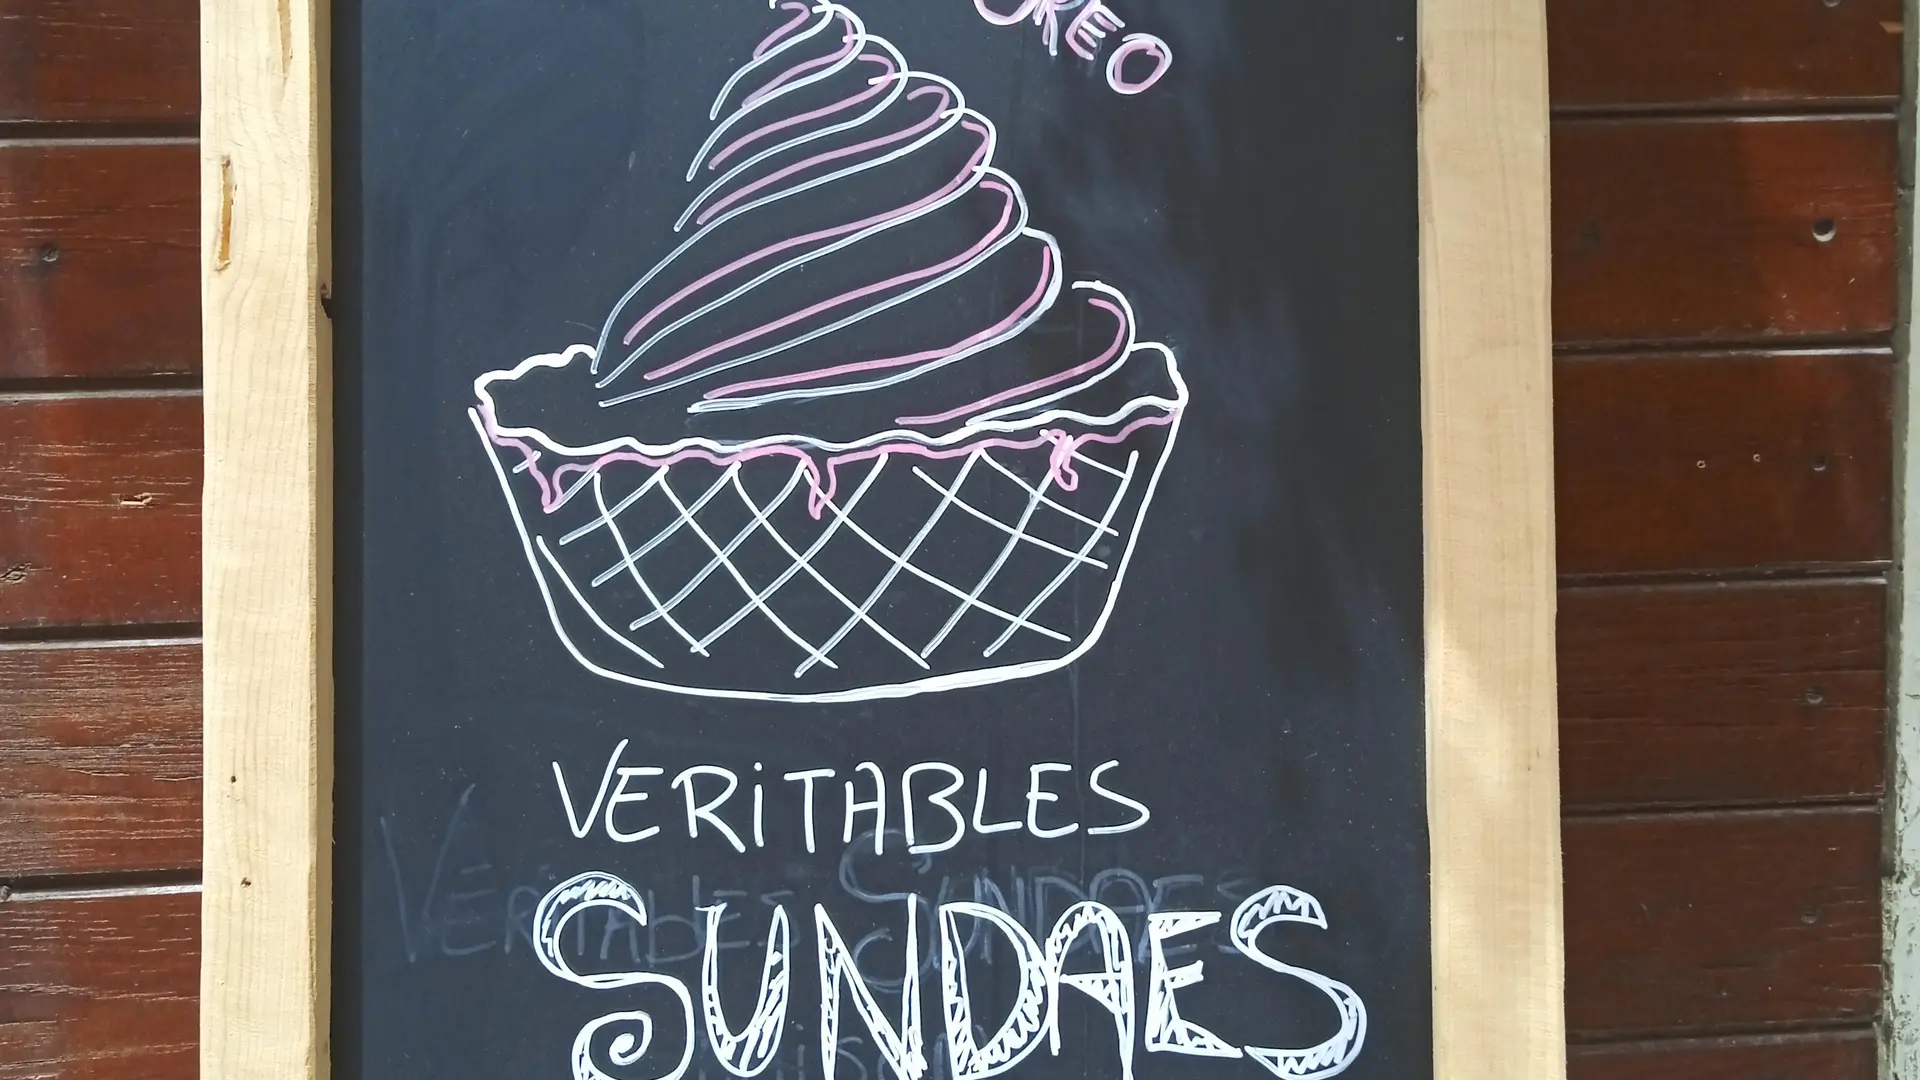 OREO
VERiTABLES
VERITAbLES SUNDAES
SUNDAES